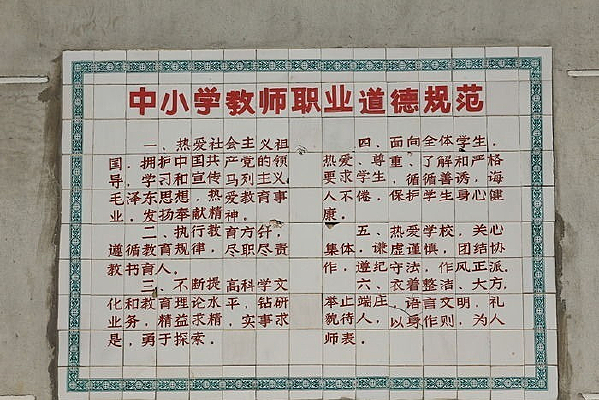 中小学教师职业道德规范
一、热爱社会主义祖
国，拥护中国共产党的领
导，学习和宣传马列主义、
毛泽东思想，热爱教育事
业，发扬奉献精神。
二、执行教育方针，
遵循教育规律，尽职尽责
教书育人。
三、不断提高科学文
化和教育理论水平，钻研
业务，精益求精，实事求
是，勇于探索。
四、面向全体学生，
热爱、尊重、了解和严格
要求学生，循循善诱，诲
人不倦，保护学生身心健
康。
五、热爱学校，关心
集体，谦虚谨慎，团结协
作，遵纪守法，作风正派。
六、衣着整洁、大方，
举止端庄，语言文明，礼
貌待人，以身作则，为人
师表。